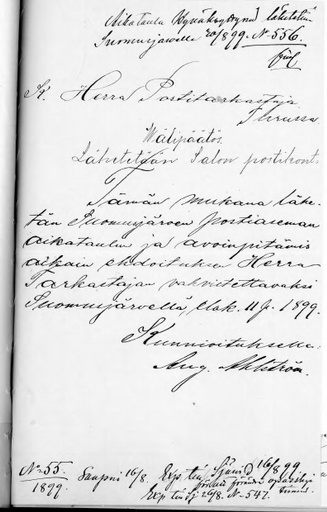 Aikataulu Hyväksyttynä lähetetään
Suomusjärvelle 20/8 99. N 556.
K. Herra Postitarkastaja
Turussa
Wälipäätös.
Lähetetään Salon postikont.
Tämän mukana lähe-
tän Suomusjärven postiaseman
aikataulun ja avoinpitämis
aikain ehdoituksen Herra
Tarkastajan vahvistettavaksi
Suomusjärvellä, Elok. 11 p. 1899.
Kunnioituksella:
Aug. Ahlström.
No 55.
1899. Saapui 16/8. Exp. 16/8 99
Exp. 20/8. N 547.